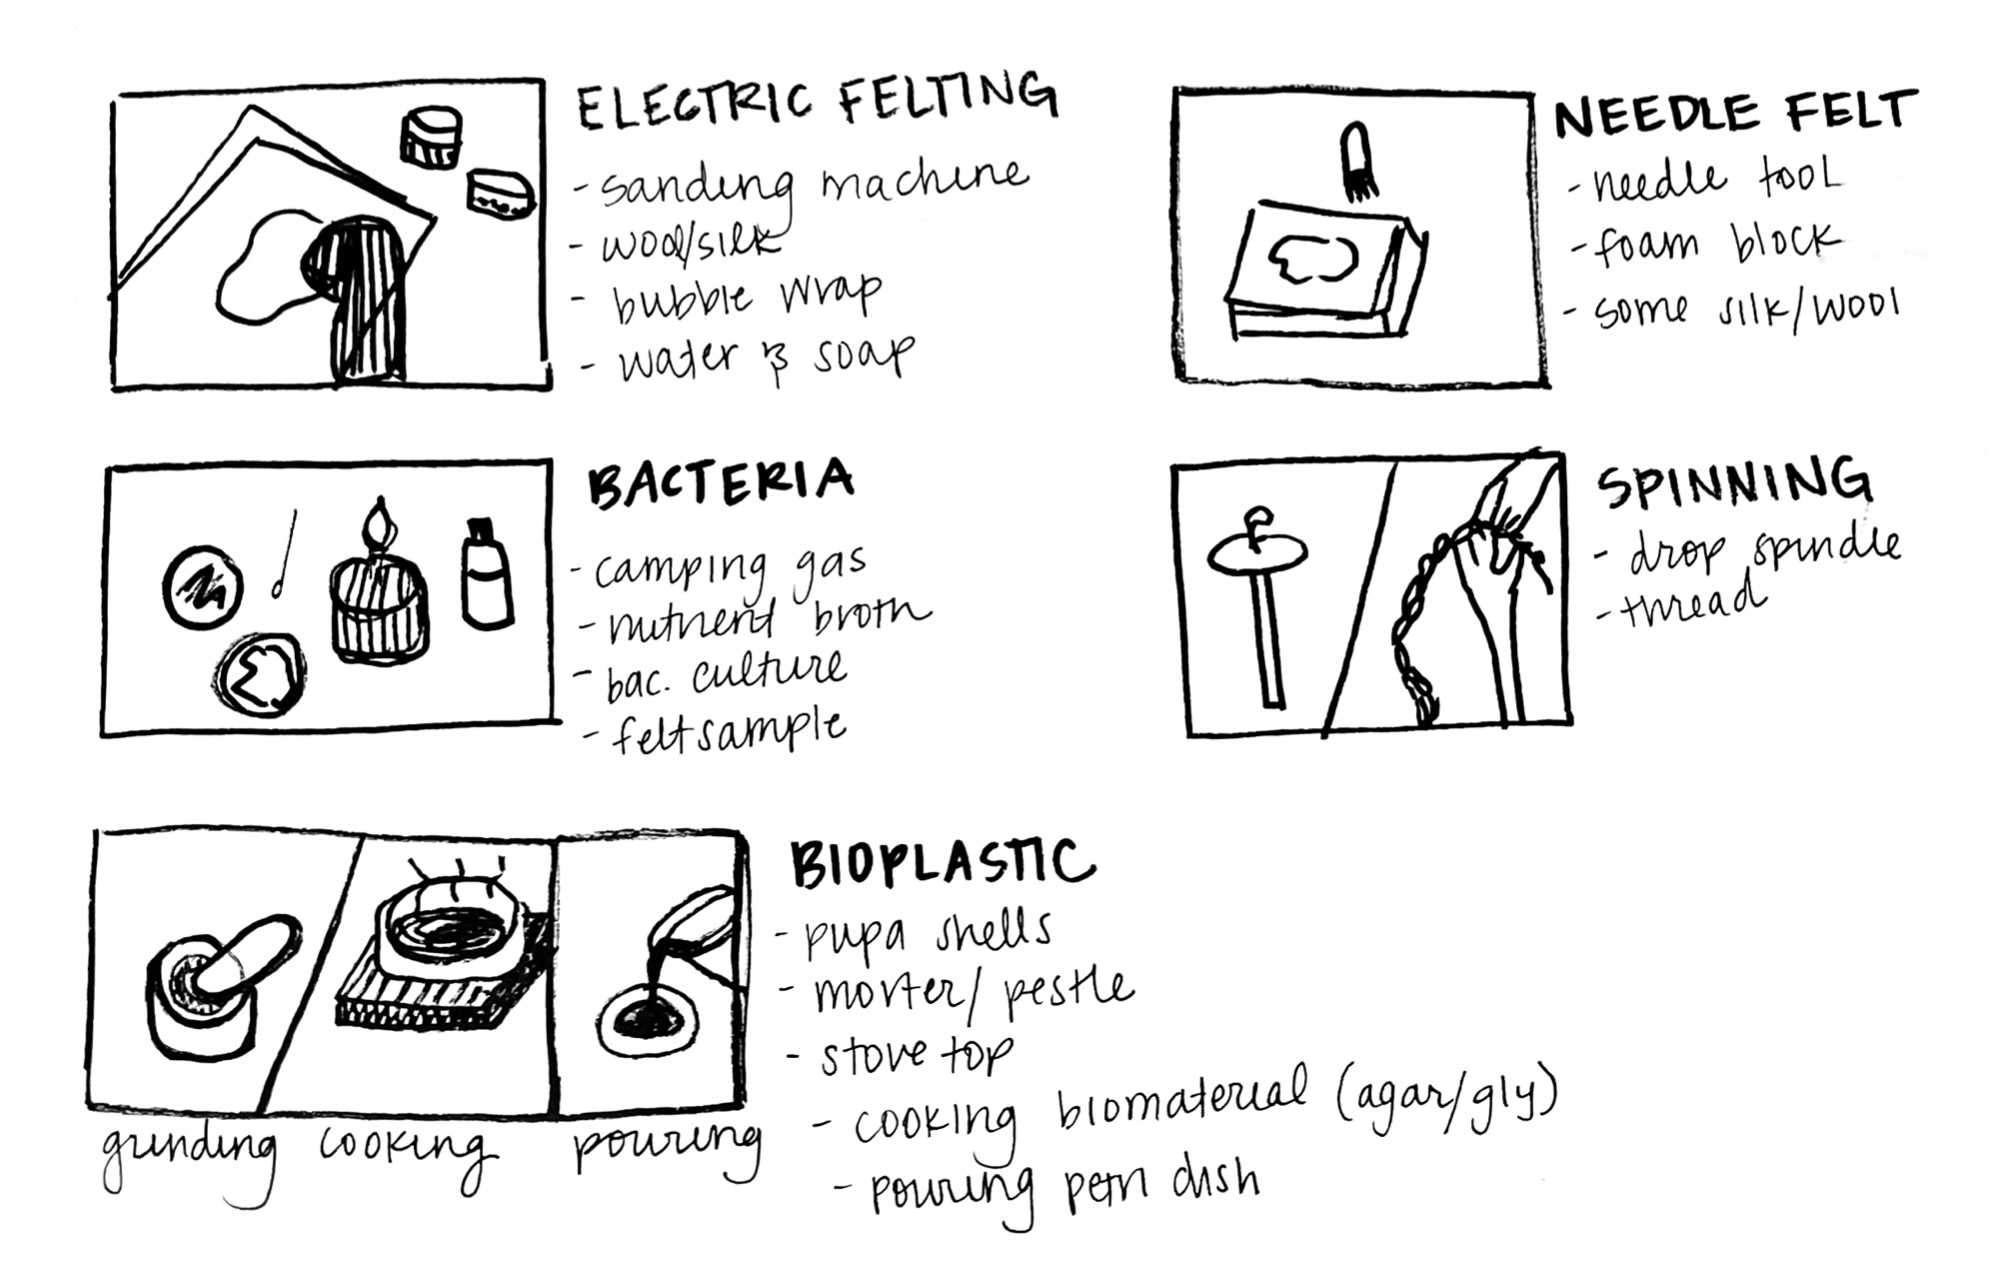 ELECTRIC FELTING
- sanding machine
- wool/silk
- bubble wrap
- water & soap
NEEDLE FELT
- needle tool
- foam block
- some silk/wool
BACTERIA
- camping gas
- nutrient broth
- bac. culture
- felt sample
SPINNING
- drop spindle
- thread
BIOPLASTIC
- pupa shells
- morter/pestle
- stove top
- cooking biomaterial (agar/gly)
- pouring petri dish
grinding cooking pouring